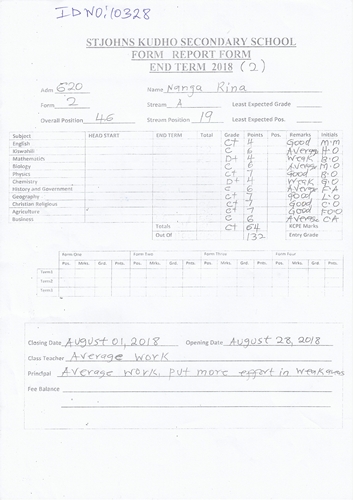 ID NO: 10328
STJOHNS KUDHO SECONDARY SCHOOL
FORM REPORT FORM
END TERM 2018 (2)
Adm 620 Name Nanga Rina
Form 2 Stream A Least Expected Grade
Overall Position 46 Stream Position 19 Least Expected Pos.
Subject HEAD START END TERM Total Grade Points Pos. Remarks Initials
English C+ 4 Good M.M
Kiswahili C 6 Average H.O
Mathematics D+ 4 Weak B.O
Biology C 6 Average M.O
Physics C+ 7 Good B.O
Chemistry D+ 4 Weak G.O
History and Government C 6 Average F.A
Geography C+ 7 Good L.O
Christian Religious C+ 7 Good C.O
Agriculture C+ 7 Good F.O.O
Business C 6 Average C.A
Totals C+ 64 KCPE Marks
Out Of 132 Entry Grade
Form One Form Two Form Three Form Four
Pos. Mrks. Grd. Pos. Mrks. Grd. Pos. Mrks. Grd. Pos. Mrks. Grd.
Term1
Term2
Term3
Closing Date August 01, 2018 Opening Date August 28, 2018
Class Teacher Average Work
Principal Average work. put more effort in weak areas
Fee Balance